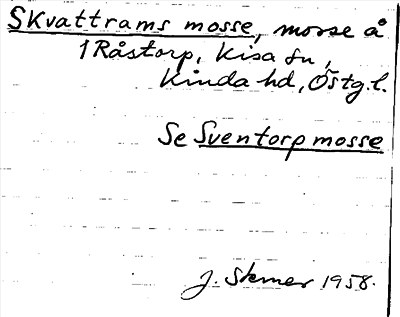 Skvattrams mosse, mosse å
1 Råstorp, Kisa sn,
Kinda hd, Östg.l.
Se Sventorp mosse
J. 1958.